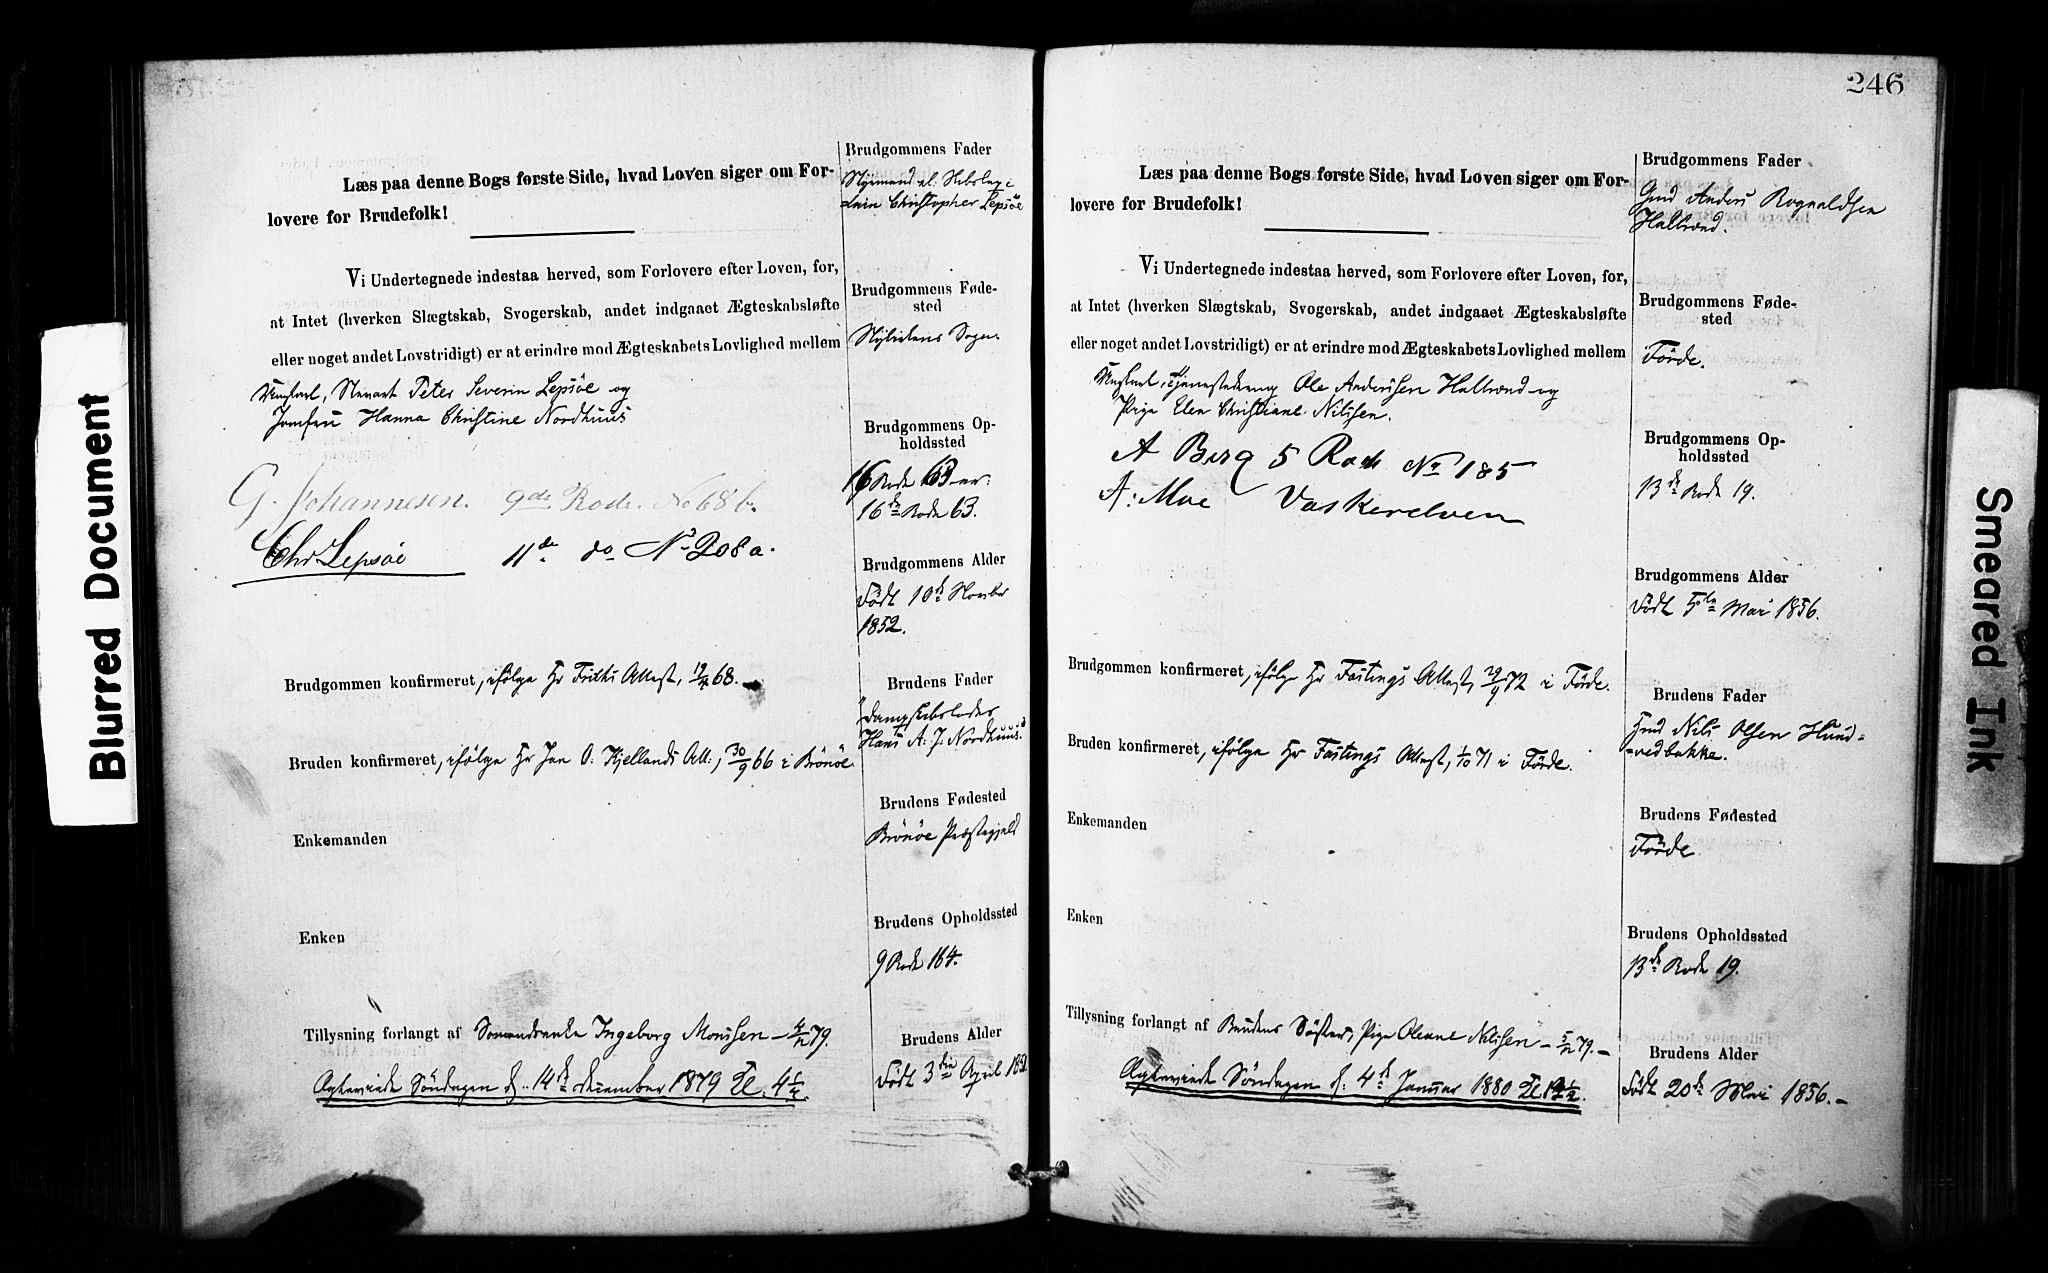 Blurred Document
Læs paa denne Bogs første Side, hvad Loven siger om For-
lovere for Brudefolk!
Vi Undertegnede indestaa herved, som Forlovere efter Loven, for,
at Intet (hverken Slægtskab, Svogerskab, andet indgaaet Ægteskabsløfte
eller noget andet Lovstridigt) er at erindre mod Ægteskabets Lovlighed mellem
Ungkarl, Stewart Peter Severin Lepsöe og
Jomfru Hanna Christine Nordhuus
G. Johannesen. 9de Rode. No 68 b.
Chr Lepsöe 11te do No 208 a.
Brudgommen konfirmeret, ifölge Hr Friths Attest, 68.
Bruden konfirmeret, ifölge Hr Jan O. Kjellands Att., 30/9 66 i Brönöe
Enkemanden
Enken
Tillysning forlangt af Ingeborg Monssen - 4/12 79.
Söndagen d. 14de December 1879 Kl. 4 1/2.
Brudgommens Fader
Styrmand
Christopher Lepsöe
Brudgommens Føde-
sted
Nykirkens Sogn.
Brudgommens Op-
holdssted
16 Rode 63
16de Rode 63.
Brudgommens Alder
Födt 10de November
1852.
Brudens Fader
Hans A. J. Nordhuus.
Brudens Fødested
Brönöe Præstegjeld
Brudens Opholdssted
9 Rode 164.
Brudens Alder
Födt 3die April
246
Læs paa denne Bogs første Side, hvad Loven siger om For-
lovere for Brudefolk!
Vi Undertegnede indestaa herved, som Forlovere efter Loven, for,
at Intet (hverken Slægtskab, Svogerskab, andet indgaaet Ægteskabsløfte
eller noget andet Lovstridigt) er at erindre mod Ægteskabets Lovlighed mellem
Ungkarl, Tjenestedreng Ole Anderssen Halbrænd og
Pige Elen Christiane Nilssen.
A Berg 5 Rode No 185
A: Moe Vaskerelven
Brudgommen konfirmeret, ifölge Hr Fastings Attest, 29/9 72 i Förde.
Bruden konfirmeret, ifölge Hr Fastings Attest, 1/10 71 i Förde.
Enkemanden
Enken
Tillysning forlangt af Brudens Söster, Pige Oleane Nilssen - 5/12 79. -
Söndagen d. 4de Januar 1880 Kl.
Brudgommens Fader
Gmd Anders Rognaldsen
Halbrænd.
Brudgommens Føde-
sted
Förde.
Brudgommens Op-
holdssted
13de Rode 19.
Brudgommens Alder
Födt 5te Mai 1856.
Brudens Fader
Nils Olsen Hund-
-vedbakke.
Brudens Fødested
Förde
Brudens Opholdssted
13de Rode 19.
Brudens Alder
Födt 20de Mai 1856. -
Smeared Ink